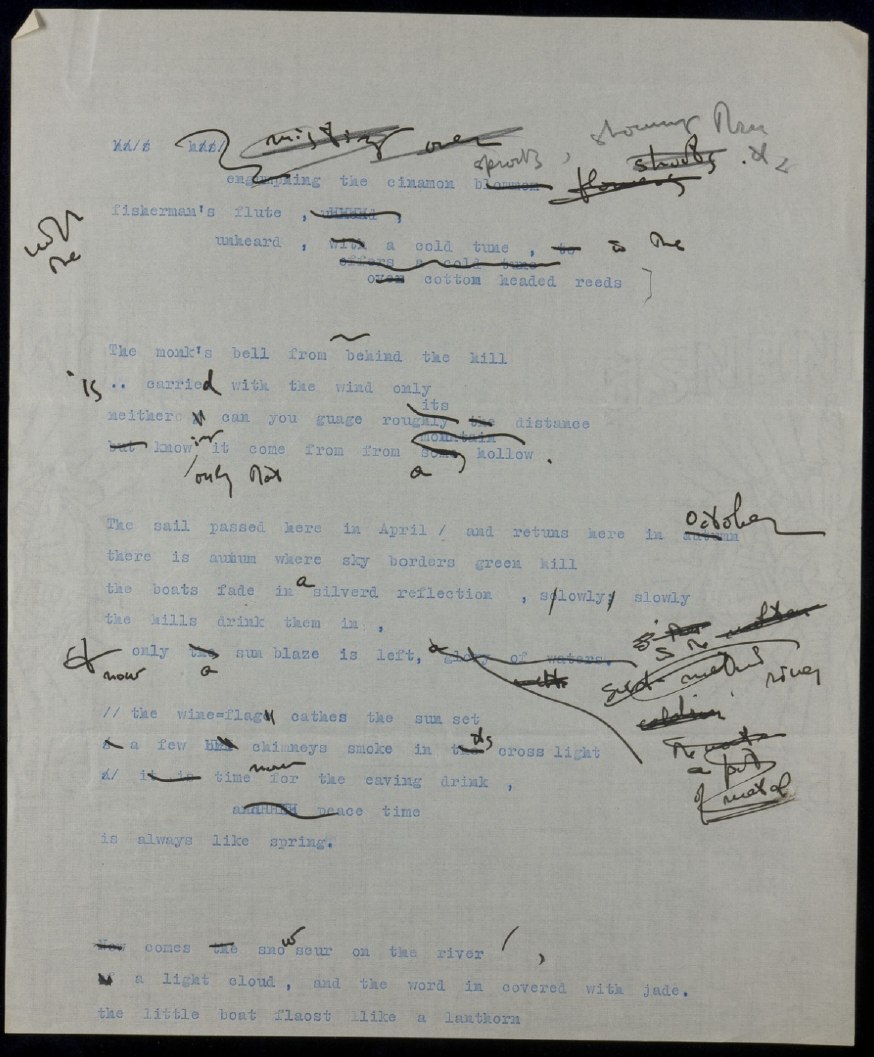 misting over
sprouts, showing then
shoots . X 2
engimpning the cinamon blommom flowers
fisherman's flute ,
with the
unheard , with a cold tune , to is the
offers a cold tune
over cotton headed reeds ]
The monk's bell from behind the hill
is .. carried with the wind only
its
neither can you guage roughly the distance
mountain
but know it come from from some hollow .
only that a
The sail passed here in April / and retuns here in autumn October
there is autum where sky borders green hill
the boats fade in a silverd reflection , slowly; slowly
the hills drink them in ,
only the sun blaze is left, glory of waters.
now a
river
a pot
of metal
// the wine=flag cathes the sun set
a few chimneys smoke in the its cross light
now
it is time for the eaving drink ,
peace time
is always like spring.
Now comes the snow scur on the river / ,
a light cloud , and the word in covered with jade.
the little boat flaost llike a lanthorn